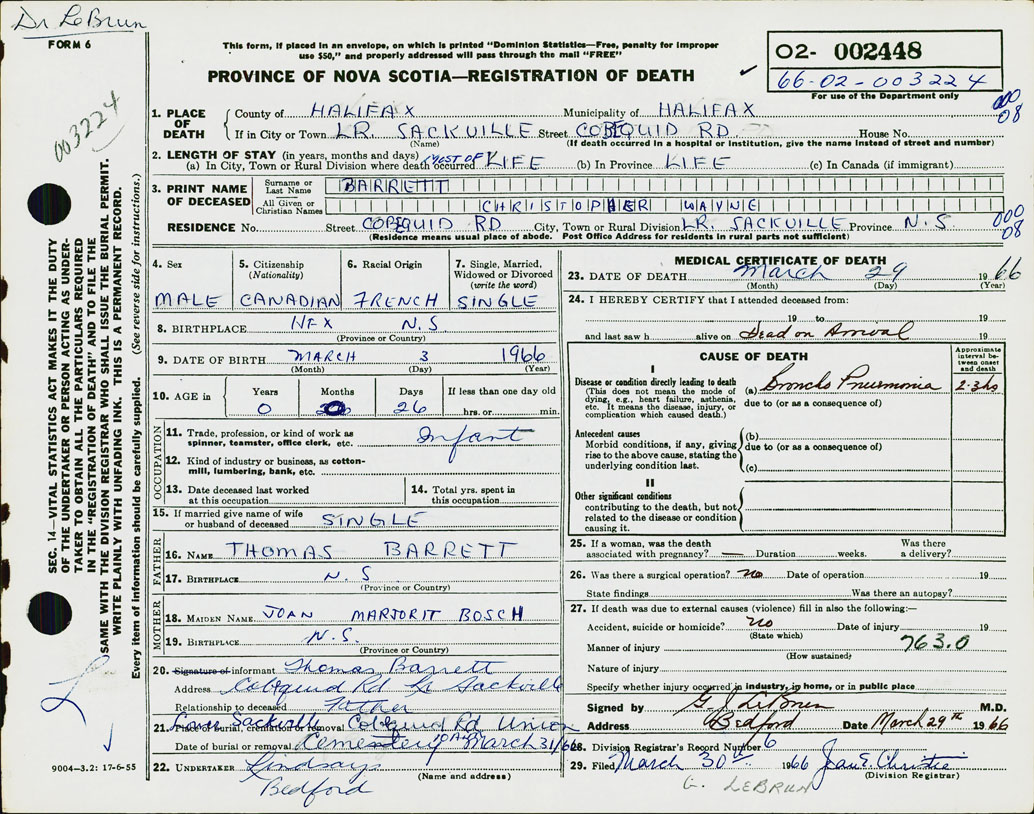 Dr LeBrun
FORM 6
This form, if placed in an envelope, on which is printed "Dominion Statistics—Free, penalty for improper
use $50," and properly addressed will pass through the mail "FREE"
PROVINCE OF NOVA SCOTIA—REGISTRATION OF DEATH
O2- 002448
66-02-003224
For use of the Department only
003224
1. PLACE OF DEATH
County of HALIFAX Municipality of HALIFAX
000
08
If in City or Town LR. SACKVILLE Street COBEQUID RD House No.
(Name) (If death occurred in a hospital or institution, give the name instead of street and number)
2. LENGTH OF STAY (in years, months and days)
(a) In City, Town or Rural Division where death occurred (MOST OF) LIFE (b) In Province LIFE (c) In Canada (if immigrant)
3. PRINT NAME OF DECEASED
Surname or Last Name BARRETT
All Given or Christian Names CHRISTOPHER WAYNE
RESIDENCE No. Street COBEQUID RD City, Town or Rural Division LR. SACKVILLE Province N.S.
000
08
(Residence means usual place of abode. Post Office Address for residents in rural parts not sufficient)
4. Sex
MALE
5. Citizenship
(Nationality)
CANADIAN
6. Racial Origin
FRENCH
7. Single, Married,
Widowed or Divorced
(write the word)
SINGLE
8. BIRTHPLACE HFX N.S
(Province or Country)
9. DATE OF BIRTH MARCH 3 1966
(Month) (Day) (Year)
10. AGE in
Years Months Days If less than one day old
0 26 hrs. or min.
OCCUPATION
11. Trade, profession, or kind of work as
spinner, teamster, office clerk, etc. Infant
12. Kind of industry or business, as cotton-
mill, lumbering, bank, etc.
13. Date deceased last worked
at this occupation
14. Total yrs. spent in
this occupation
15. If married give name of wife
or husband of deceased SINGLE
FATHER
16. NAME THOMAS BARRETT
17. BIRTHPLACE N.S.
(Province or Country)
MOTHER
18. MAIDEN NAME JOAN MARJORIT BOSCH
19. BIRTHPLACE N.S.
(Province or Country)
20. Signature of informant Thomas Barrett
Address Cobequid Rd Lr Sackville
Relationship to deceased Father
Lower Sackville Cobequid Rd Union
21. Place of burial, cremation or removal
Date of burial or removal Cemetery March 31/66
22. UNDERTAKER Lindsays
(Name and address)
Bedford
MEDICAL CERTIFICATE OF DEATH
23. DATE OF DEATH March 29 1966
(Month) (Day) (Year)
24. I HEREBY CERTIFY that I attended deceased from:
19 to 19
and last saw h alive on Dead on Arrival 19
CAUSE OF DEATH
Approximate
interval be-
tween onset
and death
I
Disease or condition directly leading to death
(This does not mean the mode of
dying, e.g., heart failure, asthenia,
etc. It means the disease, injury, or
complication which caused death.)
(a) Broncho Pneumonia 2-3 hrs
due to (or as a consequence of)
Antecedent causes
Morbid conditions, if any, giving
rise to the above cause, stating the
underlying condition last.
(b)
due to (or as a consequence of)
(c)
II
Other significant conditions
contributing to the death, but not
related to the disease or condition
causing it.
25. If a woman, was the death
associated with pregnancy? — Duration weeks. Was there
a delivery?
26. Was there a surgical operation? no Date of operation 19
State findings Was there an autopsy?
27. If death was due to external causes (violence) fill in also the following:—
Accident, suicide or homicide? no Date of injury 19
(State which)
763.0
Manner of injury
(How sustained)
Nature of injury
Specify whether injury occurred in industry, in home, or in public place
Signed by G. J. LeBrun M.D.
Address Bedford Date March 29th 1966
28. Division Registrar's Record Number 6
29. Filed March 30th 1966 Jean E. Christie
(Division Registrar)
G. LEBRUN
SEC. 14—VITAL STATISTICS ACT MAKES IT THE DUTY
OF THE UNDERTAKER OR PERSON ACTING AS UNDER-
TAKER TO OBTAIN ALL THE PARTICULARS REQUIRED
IN THE "REGISTRATION OF DEATH" AND TO FILE THE
SAME WITH THE DIVISION REGISTRAR WHO SHALL ISSUE THE BURIAL PERMIT.
WRITE PLAINLY WITH UNFADING INK. THIS IS A PERMANENT RECORD.
Every item of information should be carefully supplied. (See reverse side for instructions.)
9004-3.2: 17-6-55